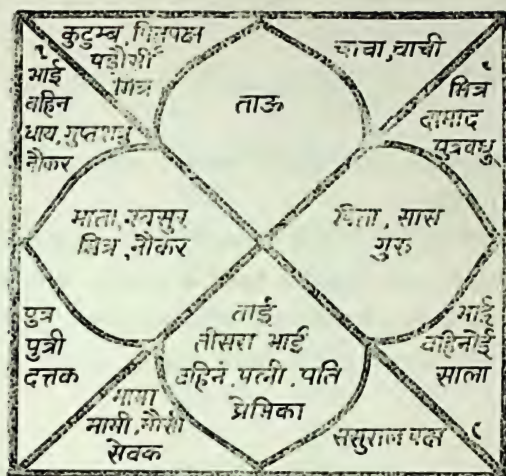 कुटुम्ब, मित्रपक्ष
पडौसी
मित्र
चाचा, चाची
भाई
वहिन
धाय, गुप्तशत्रु
नौकर
ताऊ
मित्र
दामाद
पुत्रवधु
माता, श्वसुर
मित्र, नौकर
पिता, सास
गुरु
पुत्र
पुत्री
दत्तक
ताई
तीसरा भाई
वहिन, पत्नी, पति
प्रेमिका
भाई
वहिनोई
साला
मामा
मामी, मौसी
सेवक
ससुराल पक्ष